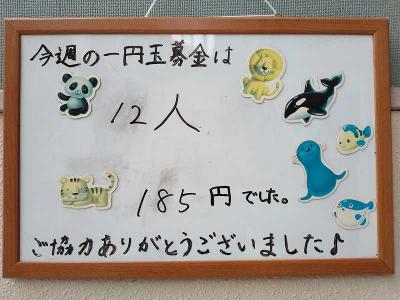 今週の一円玉募金は
12人
185円でした。
ご協力ありがとうございました♪